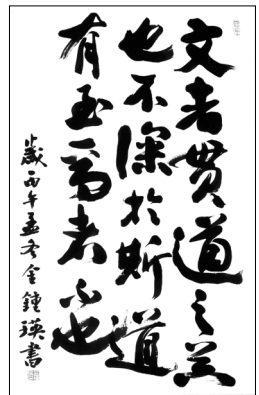 文者貫道之器
也不深於斯道
有至焉者不也
歲丙午孟冬金鍾瑛書